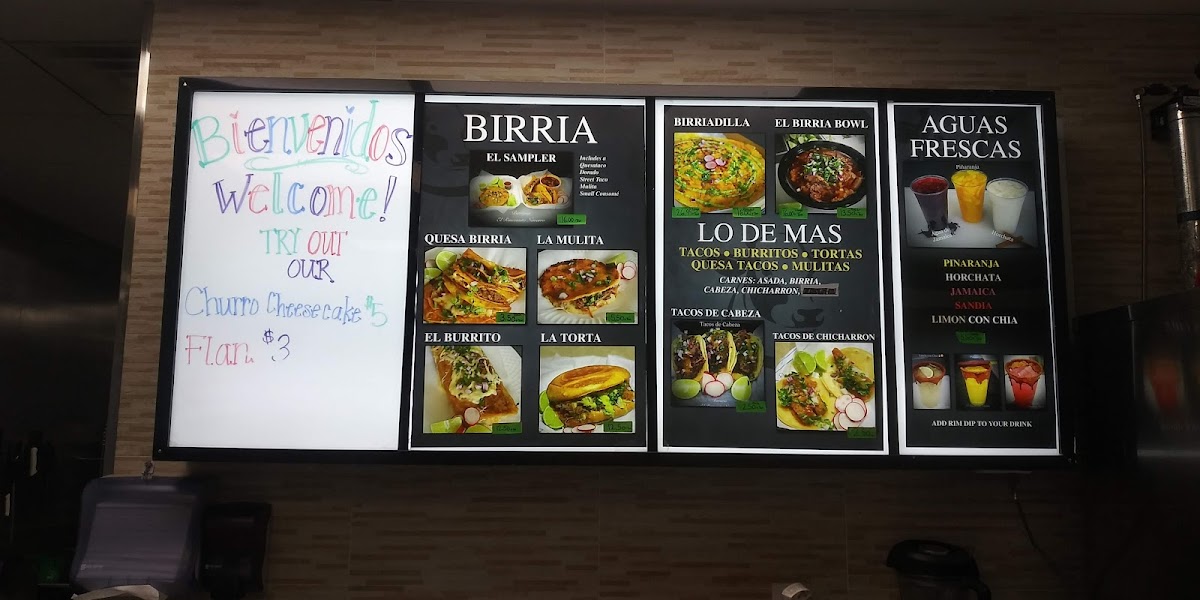 Bienvenidos
Welcome!
TRY OUT
OUR
Churro Cheesecake $5
Flan $3
BIRRIA
EL SAMPLER
Includes a
Quesataco
Dorado
Street Taco
Mulita
Small Consomé
16.00
QUESA BIRRIA
LA MULITA
EL BURRITO
LA TORTA
BIRRIADILLA
EL BIRRIA BOWL
LO DE MAS
TACOS • BURRITOS • TORTAS
QUESA TACOS • MULITAS
CARNES: ASADA, BIRRIA,
CABEZA, CHICHARRON,
TACOS DE CABEZA
Tacos de Cabeza
TACOS DE CHICHARRON
AGUAS
FRESCAS
Piñaranja
Jamaica
Horchata
PINARANJA
HORCHATA
JAMAICA
SANDIA
LIMON CON CHIA
ADD RIM DIP TO YOUR DRINK